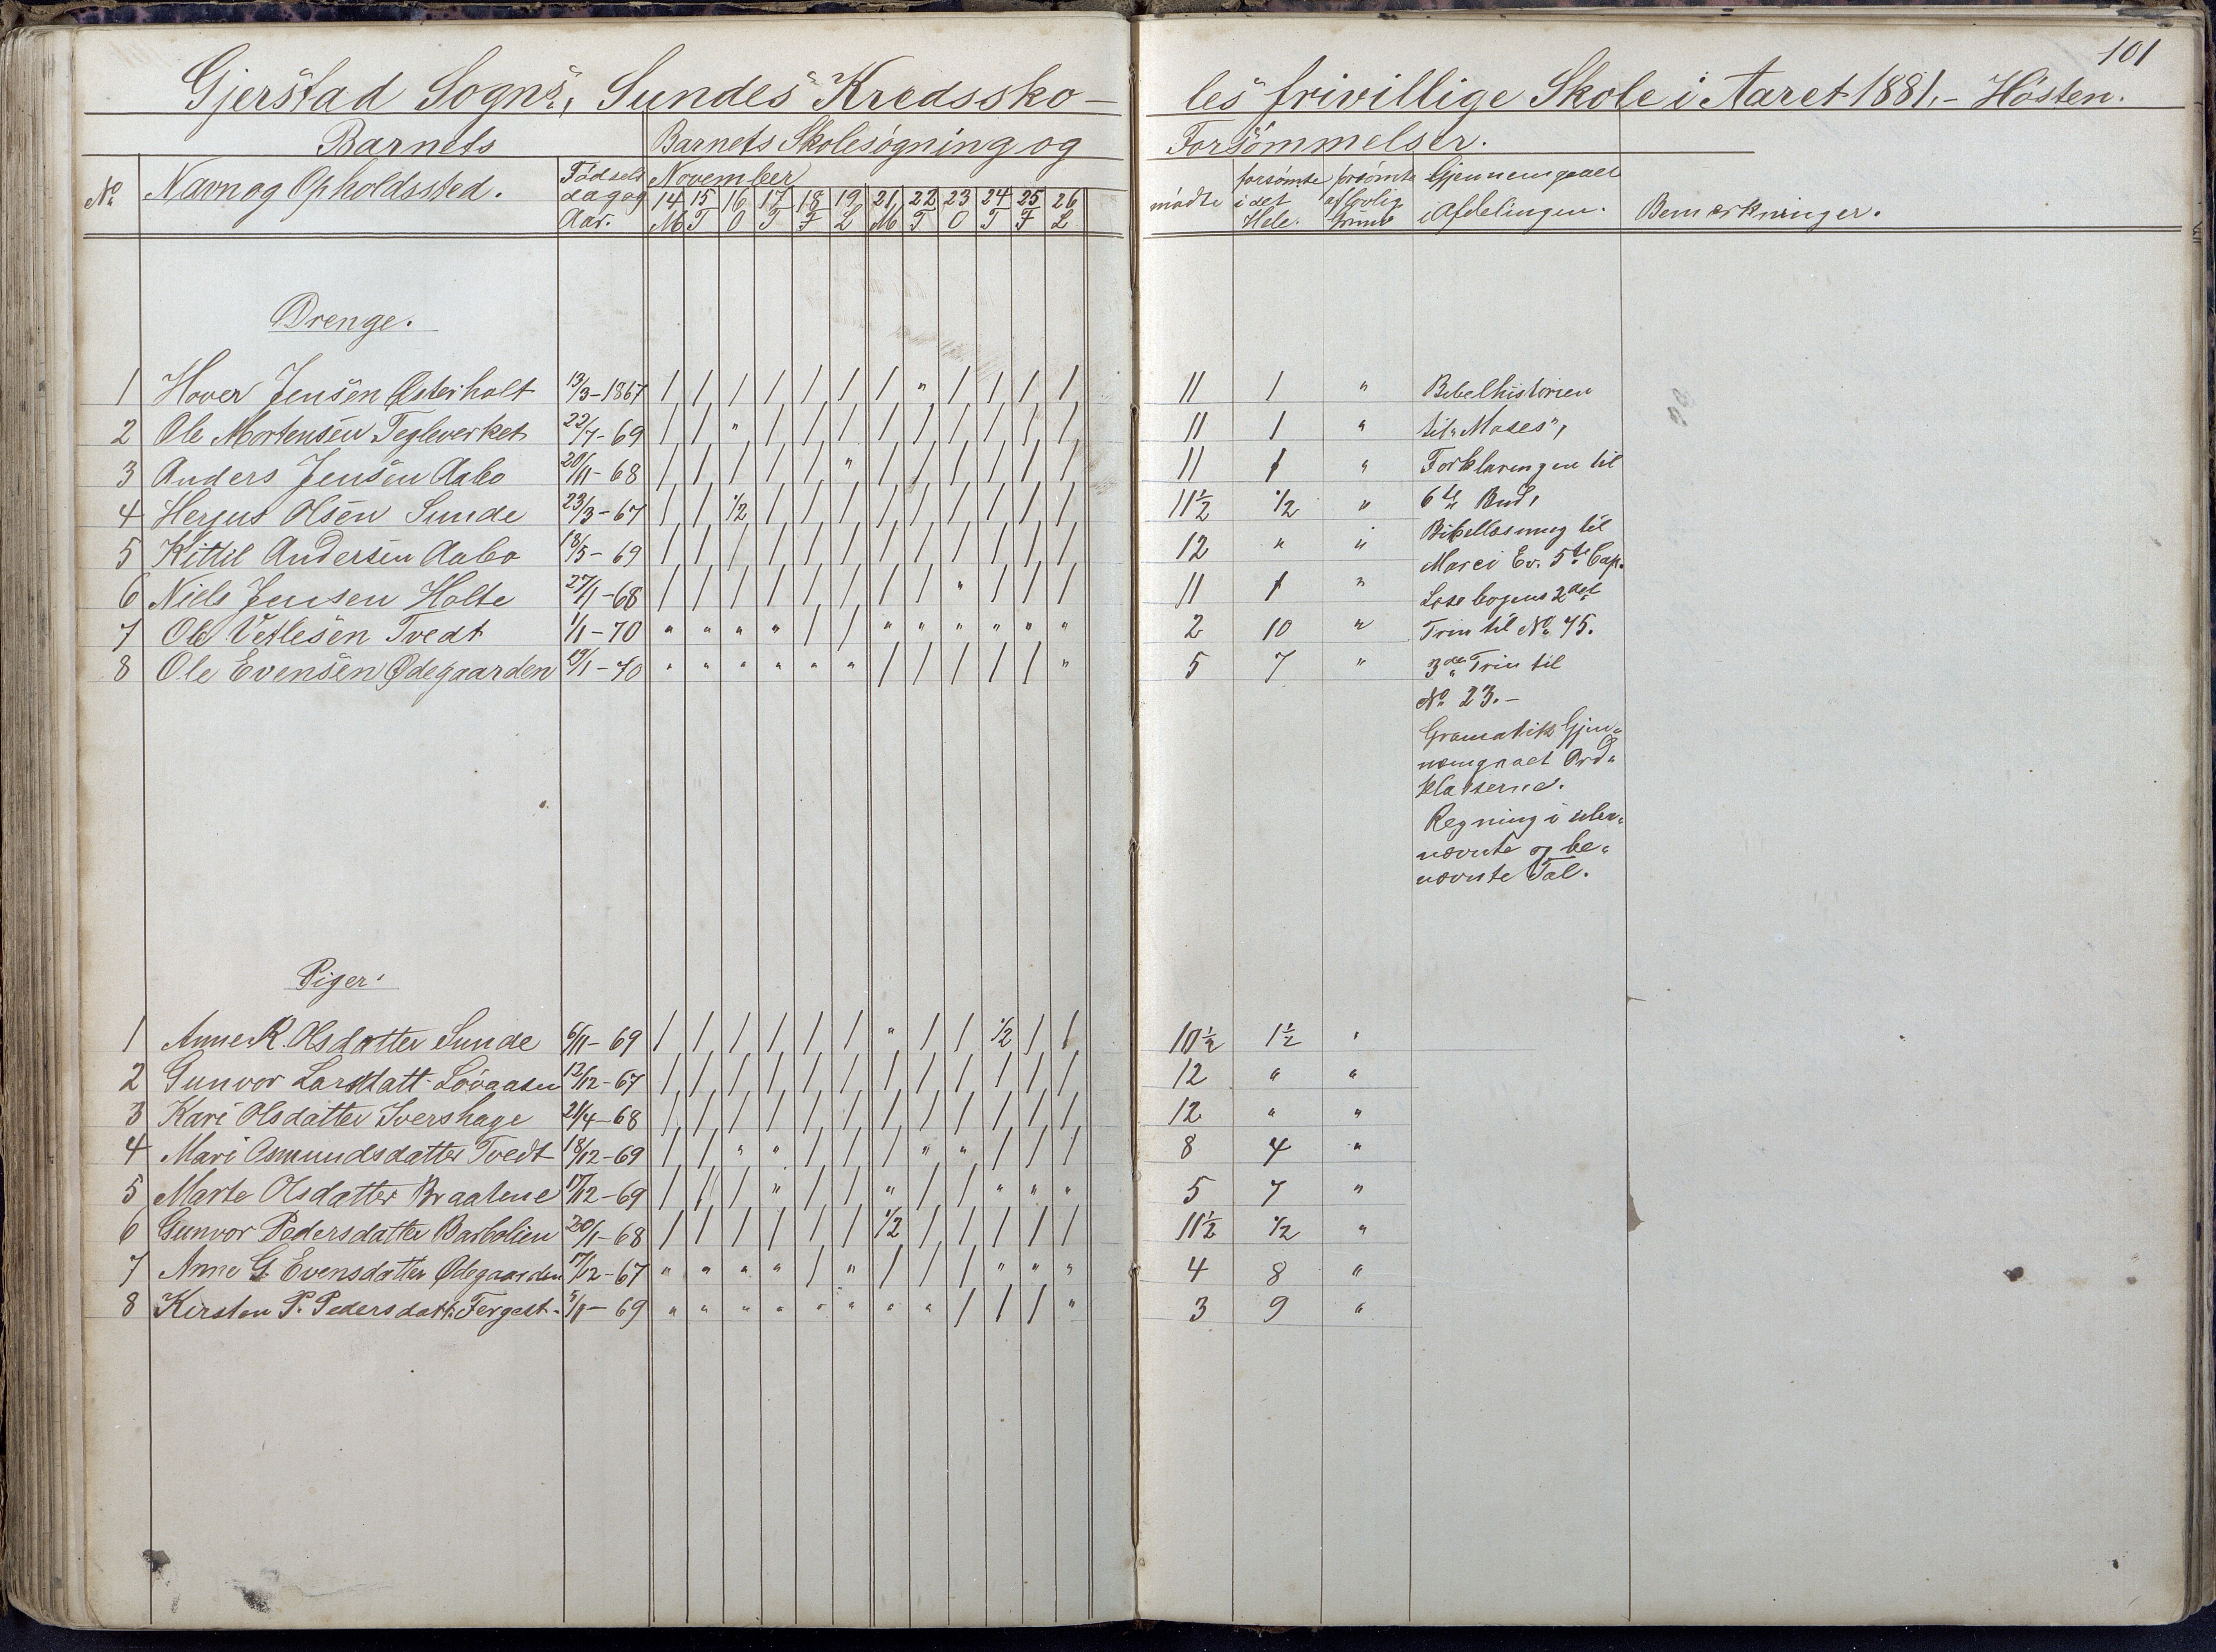 101
Gjerstad Sogns, Sundes Kredssko- les frivillige Skole i Aaret 1881. - Hösten.
Barnets | Barnets Skolesøgning og Forsömmelser.
No | Navn og Opholdssted. | Födsels dag og Aar. | November | mødte | forsømte i det Hele. | forsømte af lovlig Grund | Gjennemgaaet i Afdelingen. | Bemærkninger.
14 15 16 17 18 19 21 22 23 24 25 26
M T O T F L M T O T F L
Drenge.
1 Hover Jensen Østerholt 13/3-1867 / / / / / / / " / / / / 11 1 " Bibelhistorien
2 Ole Mortensen Teglverket 22/7-69 / / " / / / / / / / / / 11 1 " til "Moses",
3 Anders Jensen Aabo 20/11-68 / / / / / " / / / / / / 11 1 " Forklaringen til
4 Herjus Olsen Sunde 23/3-67 / / 1/2 / / / / / / / / / 11 1/2 1/2 " 6te Bud,
5 Kittil Andersen Aabo 18/5-69 / / / / / / / / / / / / 12 " " Bibellæsning til
Marci Ev. 5te Cap.
6 Niels Jensen Holte 27/1-68 / / / / / / / / " / / / 11 1 " Læsebogens 2det
7 Ole Vetlesen Tvedt 1/1-70 " " " " / / " " " " " " 2 10 " Trin til No 75.
8 Ole Evensen Ødegaarden 19/1-70 " " " " " " / / / / / " 5 7 " 3die Trin til
No 23.-
Gramatik Gjen-
nemgaaet Ord-
klasserne.
Regning i ube-
nævnte og be-
nævnte Tal.
Piger.
1 Anne K. Olsdatter Sunde 6/11-69 / / / / / / " / / 1/2 / / 10 1/2 1 1/2 "
2 Gunvor Larsdatt. Løvaasen 12/12-67 / / / / / / / / / / / / 12 " "
3 Kari Olsdatter Ivershage 21/4-68 / / / / / / / / / / / / 12 " "
4 Mari Osmundsdatter Tvedt 18/12-69 / / " " / / / " " / / / 8 4 "
5 Marte Olsdatter Braatene 17/12-69 / / / " / / " / / " " " 5 7 "
6 Gunvor Pedersdatter Barbolien 20/1-68 / / / / / / 1/2 / / / / / 11 1/2 1/2 "
7 Anne G. Evensdatter Ødegaarden 17/12-67 " " " " / " / / / " " " 4 8 "
8 Kirsten P. Pedersdatt. Fergest. 69 " " " " " " " " / / / " 3 9 "